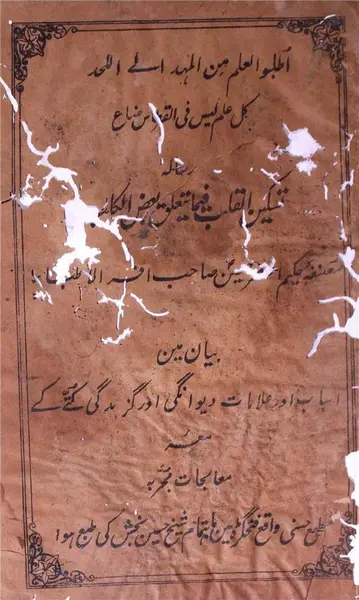 اطلبو العلم من المهد الے اللحد
کل علم لیس فی القرطاس ضاع
رسالہ
تسکین القلب فیما یتعلق بعض الکلب
مصنفہ حکیم صاحب افسر الاطبا
بیان مین
اسباب اور علامات دیوانگی اور گزیدگی کتّے کے
معہ
معالجات مجربہ
مطبع حسنی واقع فتحگڑہ مین باہتمام شیخ حسین بخش کی طبع ہوا